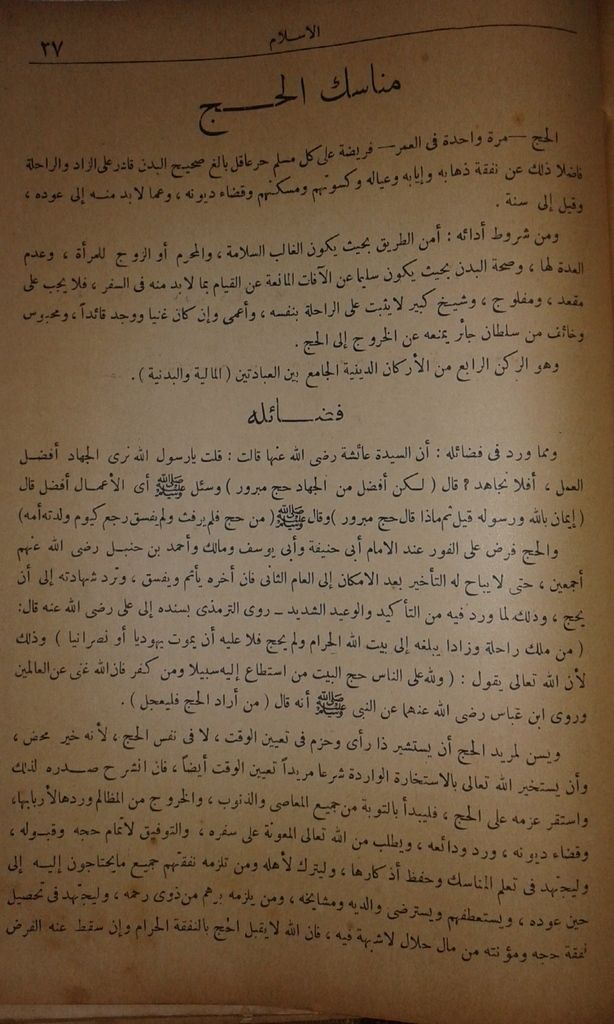 الاسلام
٢٧
مناسك الحج
الحج — مرة واحدة فى العمر — فريضة على كل مسلم حر عاقل بالغ صحيح البدن قادر على الزاد والراحلة
فاضلا ذلك عن نفقة ذهابه وإيابه وعياله وكسوتهم ومسكنهم وقضاء ديونه ، وعما لابد منه إلى عوده ،
وقيل إلى سنة .
ومن شروط أدائه : أمن الطريق بحيث يكون الغالب السلامة ، والمحرم أو الزوج للمرأة ، وعدم
العدة لها ، وصحة البدن بحيث يكون سالما عن الآفات المانعة عن القيام بما لابد منه فى السفر ، فلا يجب على
مقعد ، ومفلوج ، وشيخ كبير لا يثبت على الراحلة بنفسه ، وأعمى وإن كان غنيا ووجد قائداً ، ومحبوس
وخائف من سلطان جائر يمنعه عن الخروج إلى الحج .
وهو الركن الرابع من الأركان الدينية الجامع بين العبادتين ( المالية والبدنية ) .
فضائله
ومما ورد فى فضائله : أن السيدة عائشة رضى الله عنها قالت : قلت يارسول الله نرى الجهاد أفضل
العمل ، أفلا نجاهد ؟ قال ( لكن أفضل من الجهاد حج مبرور ) وسئل ﷺ أى الأعمال أفضل قال
( إيمان بالله ورسوله قيل ثم ماذا قال حج مبرور ) وقال ﷺ ( من حج فلم يرفث ولم يفسق رجع كيوم ولدته أمه )
والحج فرض على الفور عند الامام أبى حنيفة وأبى يوسف ومالك وأحمد بن حنبل رضى الله عنهم
أجمعين ، حتى لا يباح له التأخير بعد الامكان إلى العام الثانى فان أخره يأثم ويفسق ، وترد شهادته إلى أن
يحج ، وذلك لما ورد فيه من التأكيد والوعيد الشديد ــ روى الترمذى بسنده إلى على رضى الله عنه قال :
( من ملك راحلة وزادا يبلغه إلى بيت الله الحرام ولم يحج فلا عليه أن يموت يهوديا أو نصرانيا ) وذلك
لأن الله تعالى يقول : ( ولله على الناس حج البيت من استطاع إليه سبيلا ومن كفر فان الله غنى عن العالمين
وروى ابن عباس رضى الله عنهما عن النبى ﷺ أنه قال ( من أراد الحج فليعجل ) .
ويسن لمريد الحج أن يستشير ذا رأى وحزم فى تعيين الوقت ، لا فى نفس الحج ، لأنه خير محض ،
وأن يستخير الله تعالى بالاستخارة الواردة شرعا مريداً تعيين الوقت أيضاً ، فان انشرح صدره لذلك
واستقر عزمه على الحج ، فليبدأ بالتوبة من جميع المعاصى والذنوب ، والخروج من المظالم وردها لأربابها ،
وقضاء ديونه ، ورد ودائعه ، ويطلب من الله تعالى المعونة على سفره ، والتوفيق لاتمام حجه وقبوله ،
وليجتهد فى تعلم المناسك وحفظ أذكارها ، وليترك لأهله ومن تلزمه نفقتهم جميع مايحتاجون إليه إلى
حين عوده ، ويستعطفهم ويسترضى والديه ومشايخه ، ومن يلزمه برهم من ذوى رحمه ، وليجتهد فى تحصيل
نفقة حجه ومؤنته من مال حلال لاشبهة فيه ، فان الله لايقبل الحج بالنفقة الحرام وإن سقط عنه الفرض